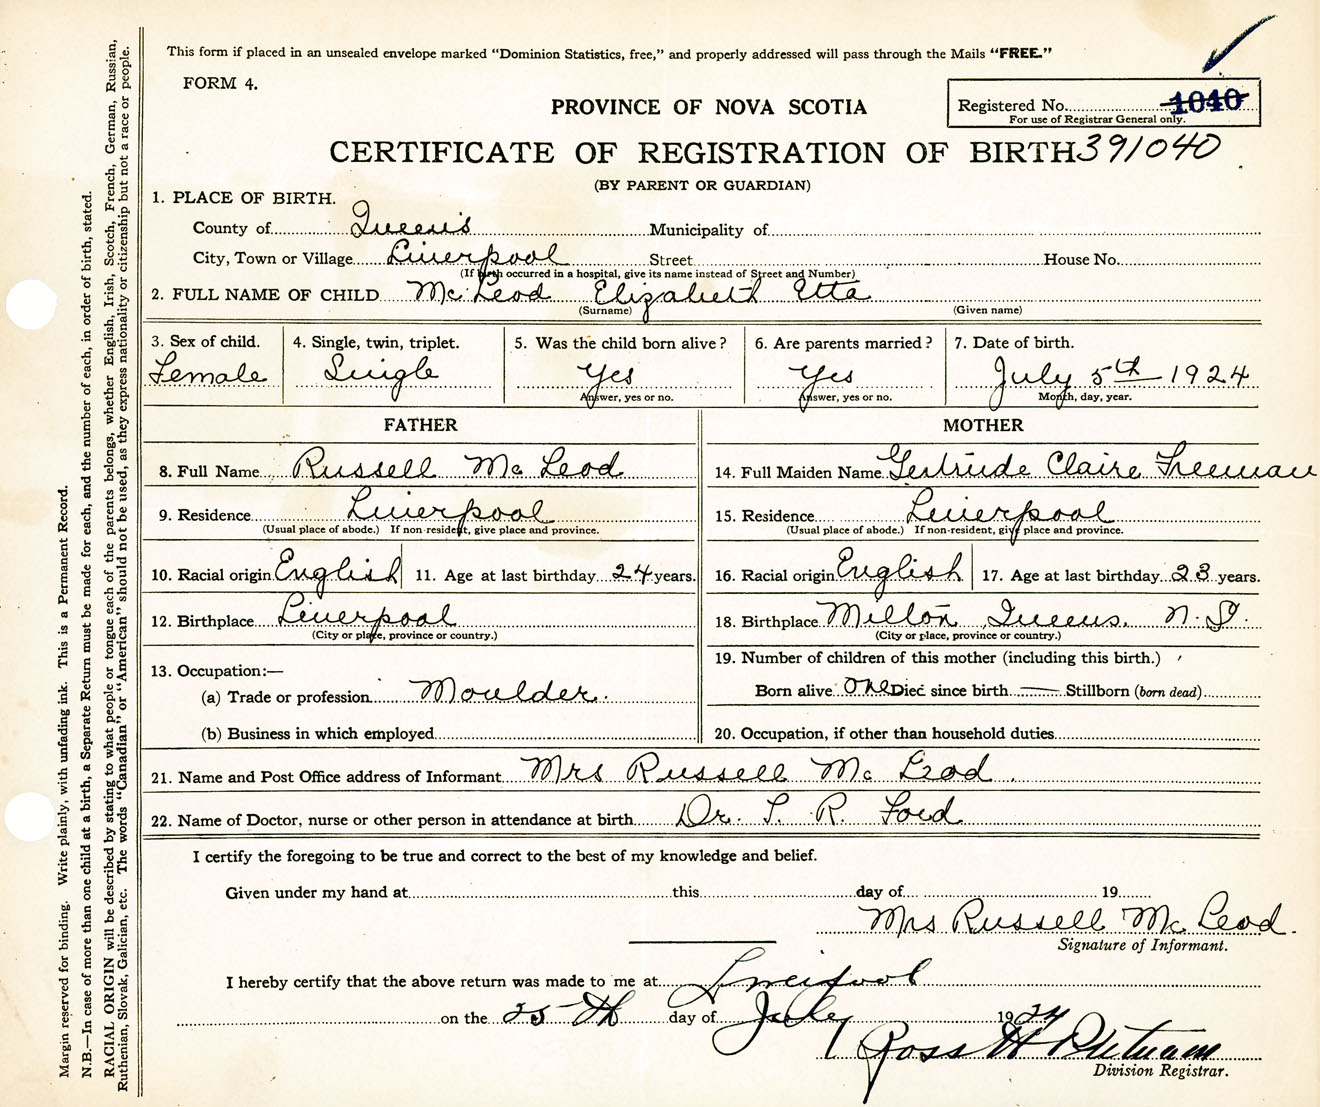 This form if placed in an unsealed envelope marked "Dominion Statistics, free," and properly addressed will pass through the Mails "FREE."
FORM 4.
PROVINCE OF NOVA SCOTIA
Registered No. 1040
For use of Registrar General only.
CERTIFICATE OF REGISTRATION OF BIRTH 391040
(BY PARENT OR GUARDIAN)
1. PLACE OF BIRTH.
County of Queens Municipality of
City, Town or Village Liverpool Street House No.
(If birth occurred in a hospital, give its name instead of Street and Number)
2. FULL NAME OF CHILD McLeod Elizabeth Etta
(Surname) (Given name)
3. Sex of child. 4. Single, twin, triplet. 5. Was the child born alive? 6. Are parents married? 7. Date of birth.
Female Single Yes Yes July 5th 1924
Answer, yes or no. Answer, yes or no. Month, day, year.
FATHER MOTHER
8. Full Name Russell McLeod 14. Full Maiden Name Gertrude Claire Freeman
9. Residence Liverpool 15. Residence Liverpool
(Usual place of abode.) If non-resident, give place and province. (Usual place of abode.) If non-resident, give place and province.
10. Racial origin English 11. Age at last birthday 24 years. 16. Racial origin English 17. Age at last birthday 23 years.
12. Birthplace Liverpool 18. Birthplace Milton, Queens. N.S.
(City or place, province or country.) (City or place, province or country.)
13. Occupation:— 19. Number of children of this mother (including this birth.)
(a) Trade or profession Moulder. Born alive One Died since birth — Stillborn (born dead)
(b) Business in which employed 20. Occupation, if other than household duties
21. Name and Post Office address of Informant Mrs Russell McLeod.
22. Name of Doctor, nurse or other person in attendance at birth Dr. T. R. Ford
I certify the foregoing to be true and correct to the best of my knowledge and belief.
Given under my hand at this day of 19
Mrs Russell McLeod.
Signature of Informant.
I hereby certify that the above return was made to me at Liverpool
on the 25th day of July 1924
Ross H Putnam
Division Registrar.
Margin reserved for binding. Write plainly, with unfading ink. This is a Permanent Record.
N.B.—In case of more than one child at a birth, a Separate Return must be made for each, and the number of each, in order of birth, stated.
RACIAL ORIGIN will be described by stating to what people or tongue each of the parents belongs, whether English, Irish, Scotch, French, German, Russian,
Ruthenian, Slovak, Galician, etc. The words "Canadian" or "American" should not be used, as they express nationality or citizenship but not a race or people.